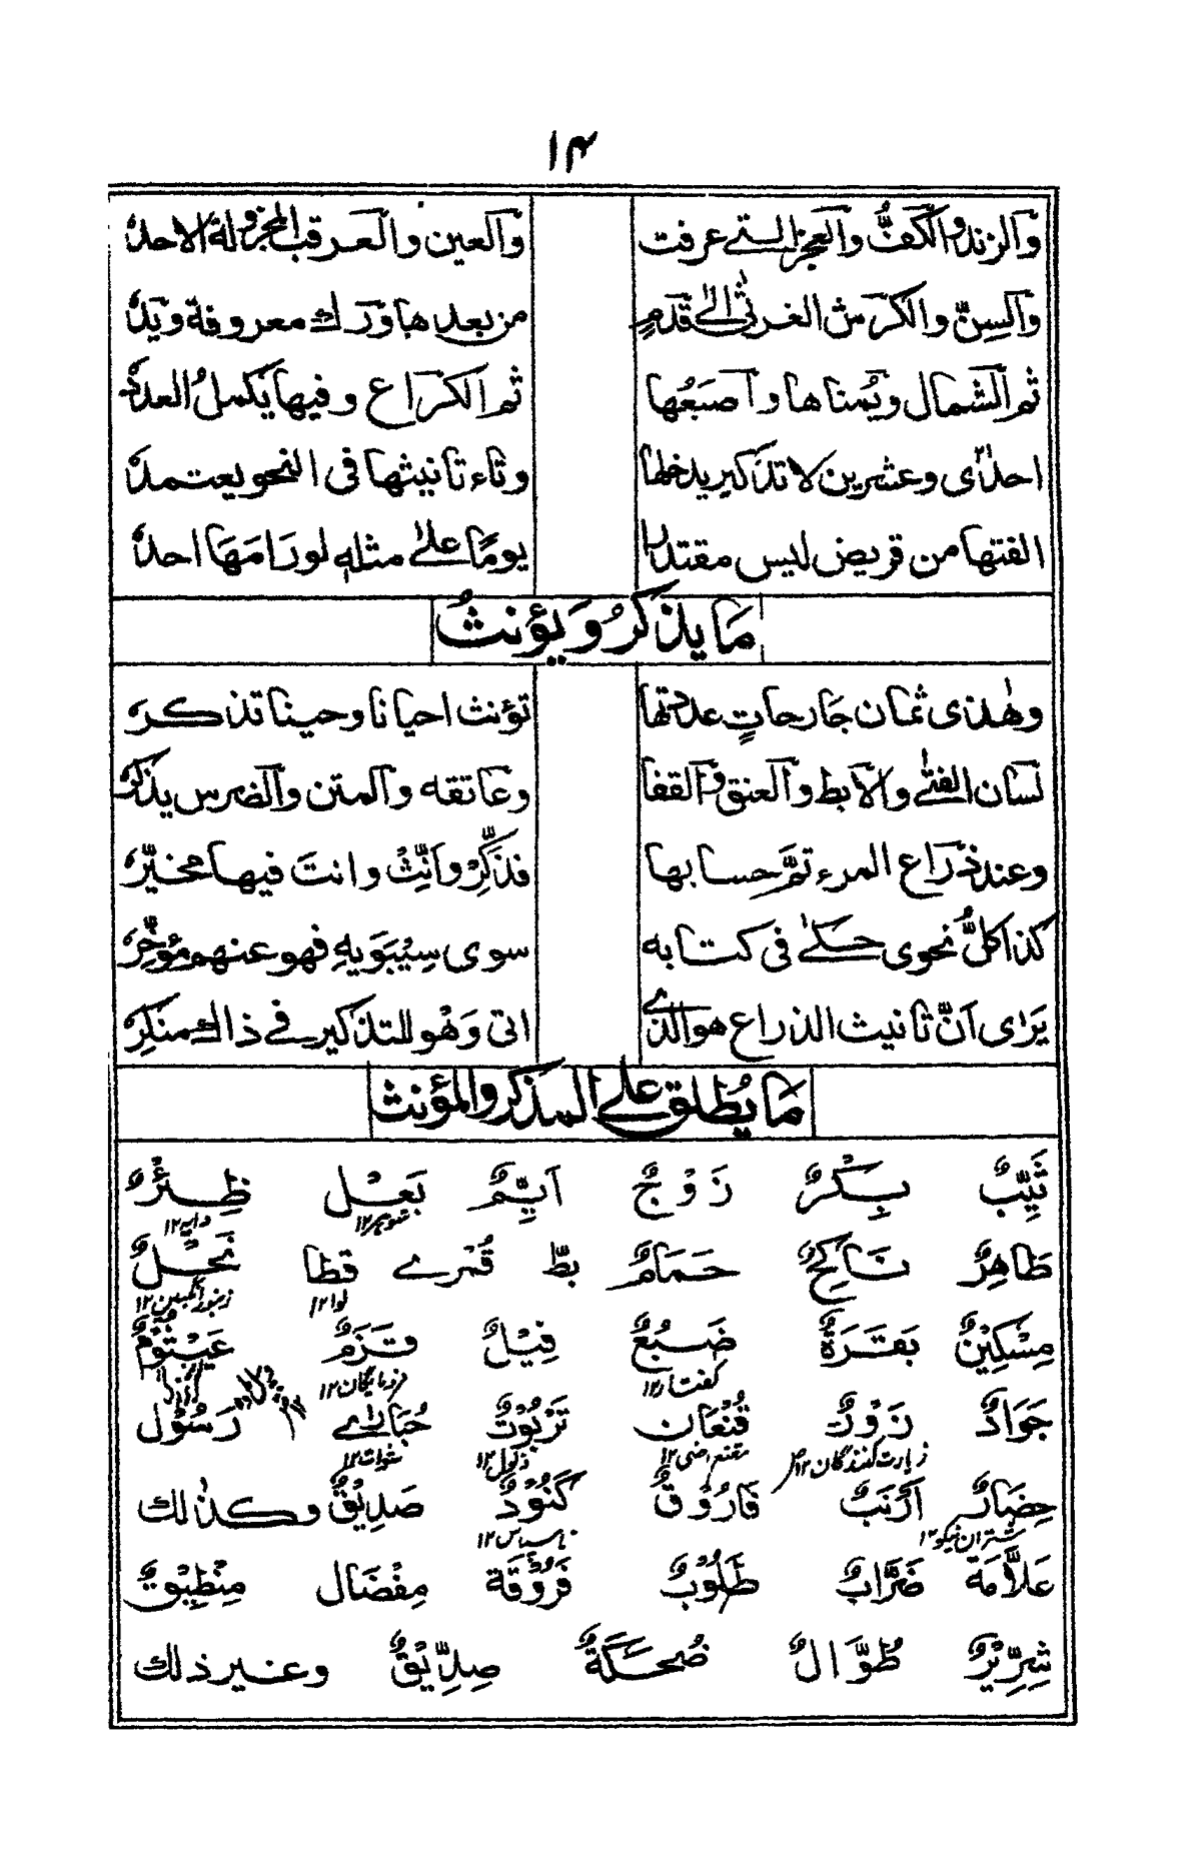 ۱۴
والزند والكفُّ والعجز التي عرفت والعين والعرقب المجزولة الاحدُ
والسِنّ والكرش الغرثى الى قدمٍ من بعدها ورك معروفة ويدُ
ثم الشمال ويُمناها واصبَعُها ثم الكراع وفيها يَكملُ العددُ
احدٰى وعشرين لا تذكير يدخلها وتاء تانيثها فى النحو يعتمدُ
الفتها من قريض ليس مقتدرا يومًا على مثله لو رَامَهَا احدُ
مَا يذكرُ ويؤنثُ
وهٰذى ثمان جَارحاتٍ عددتها تؤنث احيانا وحينا تذكر
لسان الفتى والابط والعنق والقفا وعاتقه والمتن والضرس يذكر
وعند ذراع المرء تمَّ حسابها فذكِّرْ وانِّثْ وانتَ فيها مخيّرُ
كذا كلُّ نحوى حكى فى كتابه سوى سِيْبَوَيهِ فهو عنهم مؤخّرُ
يَرٰى اَنَّ تانيث الذراع هو الذى اتى وَهْو للتذكير فى ذاك منكِرُ
مَا يُطلق على المذكر والمؤنث
ثَيِّبٌ بِكْرٌ زَوْجٌ اَيِّمٌ بَعْل ظِئْرٌ
شوهر۱۲ دایه۱۲
طَاهِرٌ نَاكِحٌ حَمَامٌ بطّ قُمْرى قطا نَحْلٌ
لوا۱۲ زنبور انگبین۱۲
مِسْكِيْنٌ بَقَرَةٌ ضَبُعٌ فِيْلٌ قَزَمٌ
کفتار۱۲ فرومایگان۱۲
جَوَادٌ زَوْرٌ قُنْعَان تَرَبُوْتٌ حُبَارٰى رَسُوْل
زیارت کنندگان۱۲ ذلول۱۲
حِضَارٌ اَرْنَبٌ فَارُوْقٌ كَنُوْدٌ صَدِيْقٌ وكذٰلك
شتران نیکو۱۲ ناسپاس۱۲
عَلَّامَة ضَرَّابٌ طَلُوْبٌ فَرُوْقَة مِفْضَال مِنْطِيْقٌ
شِرِّيْرٌ طُوَّالٌ ضُحكَةٌ صِدِّيْقٌ وغير ذلك